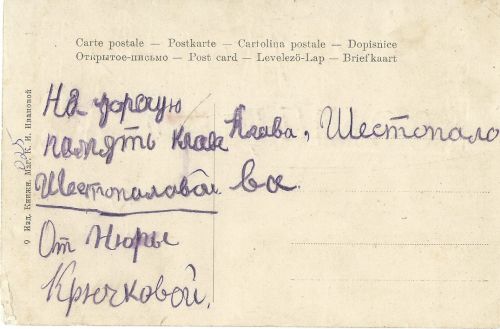 Carte postale — Postkarte — Cartolina postale — Dopisnice
Открытое-письмо — Post card — Levelező-Lap — Briefkaart
На дорогую
память Клаве Клава, Шестопало
Шестопаловой ва.
От Нюры
Крючковой.
9 Изд. Книжн. Маг. К. И. Ивановой